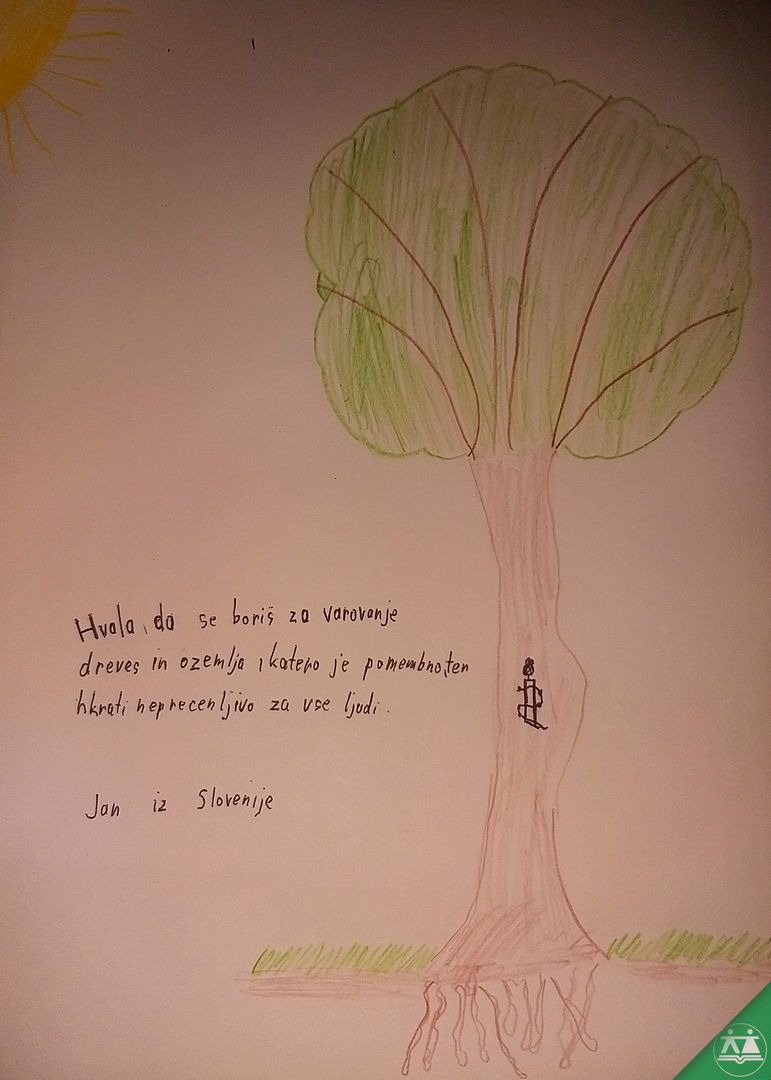 Hvala, da se boriš za varovanje
dreves in ozemlja, katero je pomembno, ten
hkrati neprecenljivo za vse ljudi.
Jan iz Slovenije